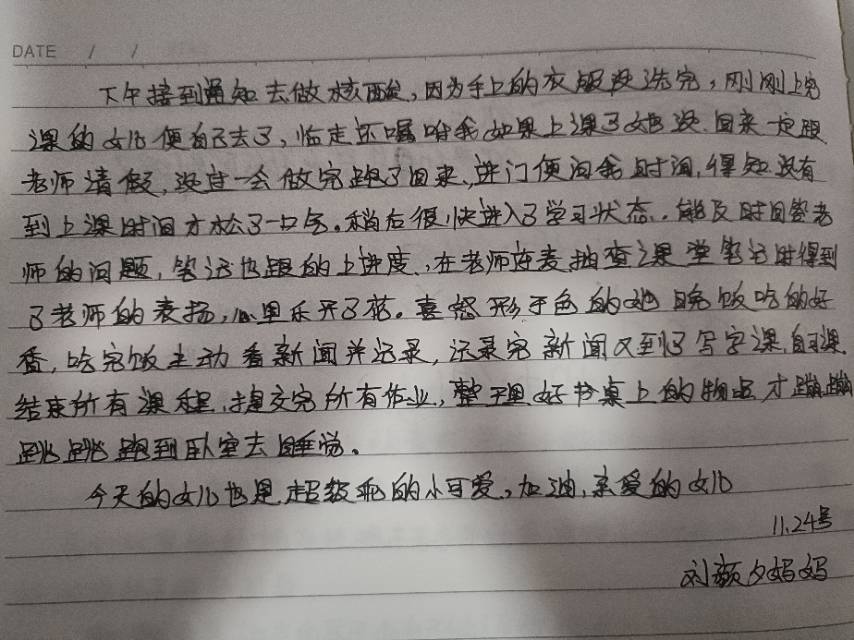 DATE / /
下午接到通知去做核酸,因为手上的衣服没洗完,刚刚上完
课的女儿便自己去了,临走还嘱咐我如果上课了她没回来一定跟
老师请假,没过一会做完跑了回来,进门便问我时间,得知没有
到上课时间才松了一口气。稍后很快进入了学习状态.能及时回答老
师的问题,笔记也跟的上进度,在老师连麦抽查课堂笔记时得到
了老师的表扬,心里乐开了花。喜怒形于色的她晚饭吃的好
香,吃完饭主动看新闻并记录,记录完新闻又到了写字课,自课
结束所有课程,提交完所有作业,整理好书桌上的物品才蹦蹦
跳跳跑到卧室去睡觉。
今天的女儿也是超级乖的小可爱,加油,亲爱的女儿
11.24号
刘颜夕妈妈